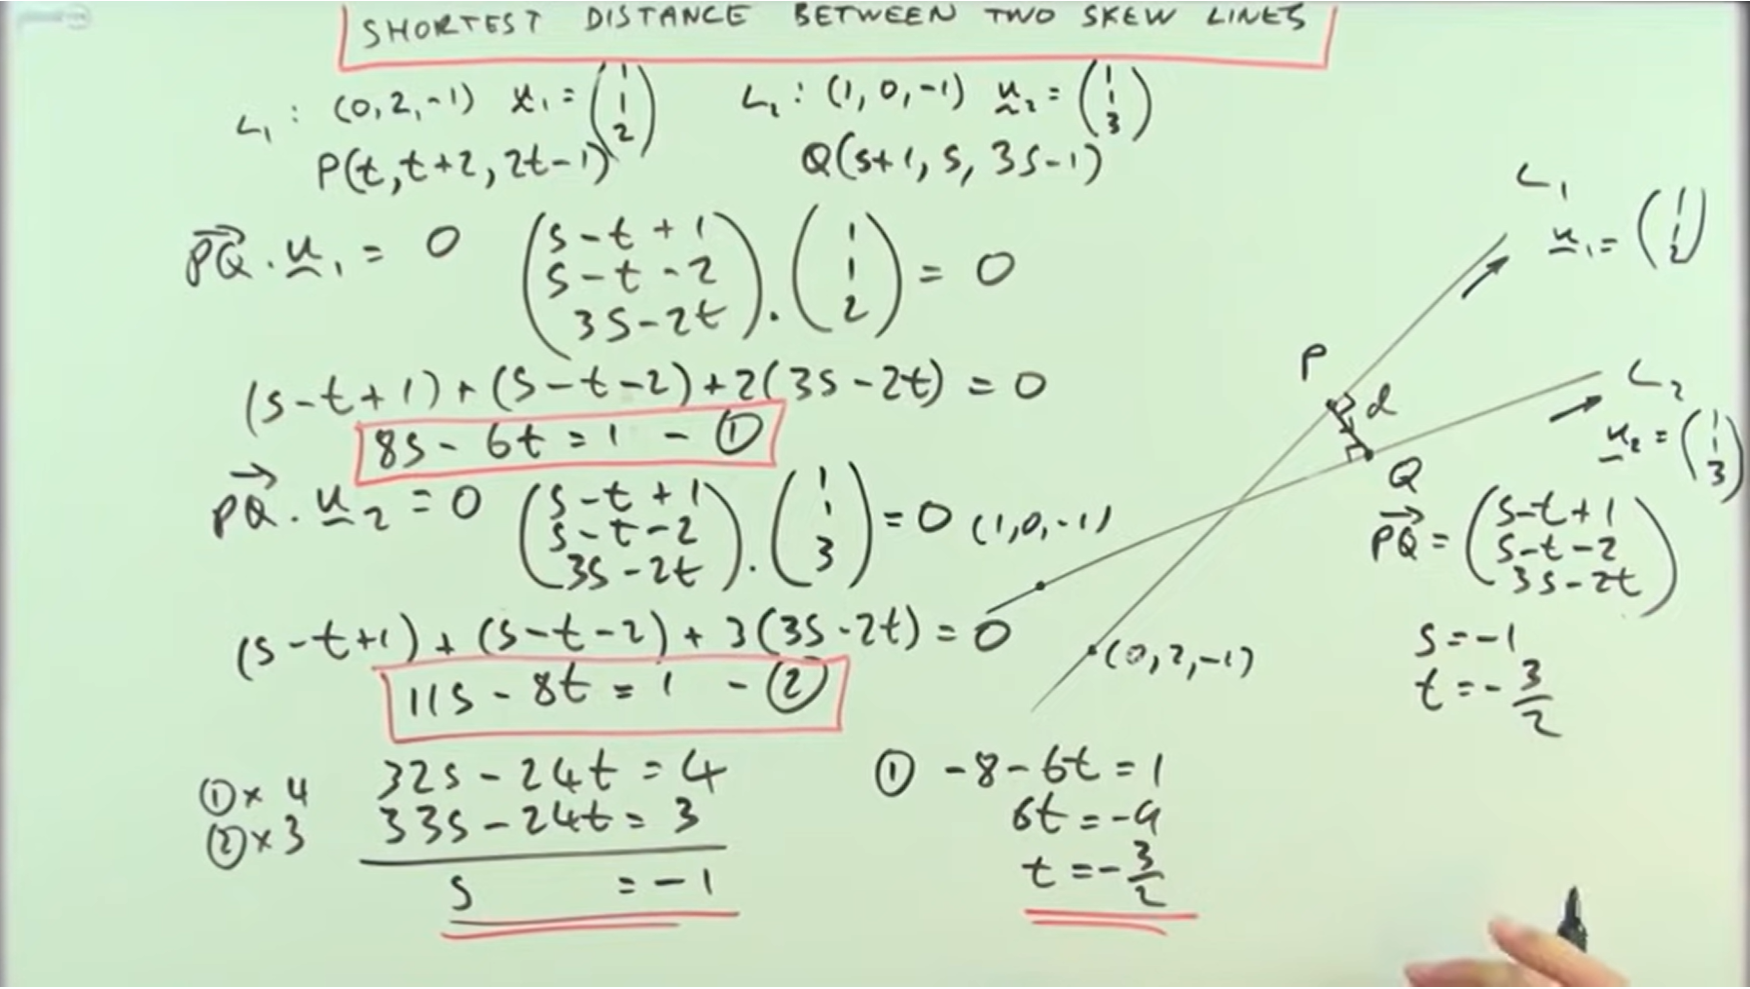 SHORTEST DISTANCE BETWEEN TWO SKEW LINES
L₁ : (0, 2, -1) u₁ = (1 1 2)
P(t, t+2, 2t-1)
L₂ : (1, 0, -1) u₂ = (1 1 3)
Q(s+1, s, 3s-1)
PQ . u₁ = 0 (s-t+1 s-t-2 3s-2t) . (1 1 2) = 0
(s-t+1) + (s-t-2) + 2(3s-2t) = 0
8s - 6t = 1 - ①
PQ . u₂ = 0 (s-t+1 s-t-2 3s-2t) . (1 1 3) = 0
(s-t+1) + (s-t-2) + 3(3s-2t) = 0
11s - 8t = 1 - ②
①×4 32s - 24t = 4
②×3 33s - 24t = 3
s = -1
① -8-6t = 1
6t = -9
t = -3/2
L₁
u₁ = (1 1 2)
P
d
L₂
u₂ = (1 1 3)
Q
(1,0,-1)
(0,2,-1)
PQ = (s-t+1 s-t-2 3s-2t)
s = -1
t = -3/2